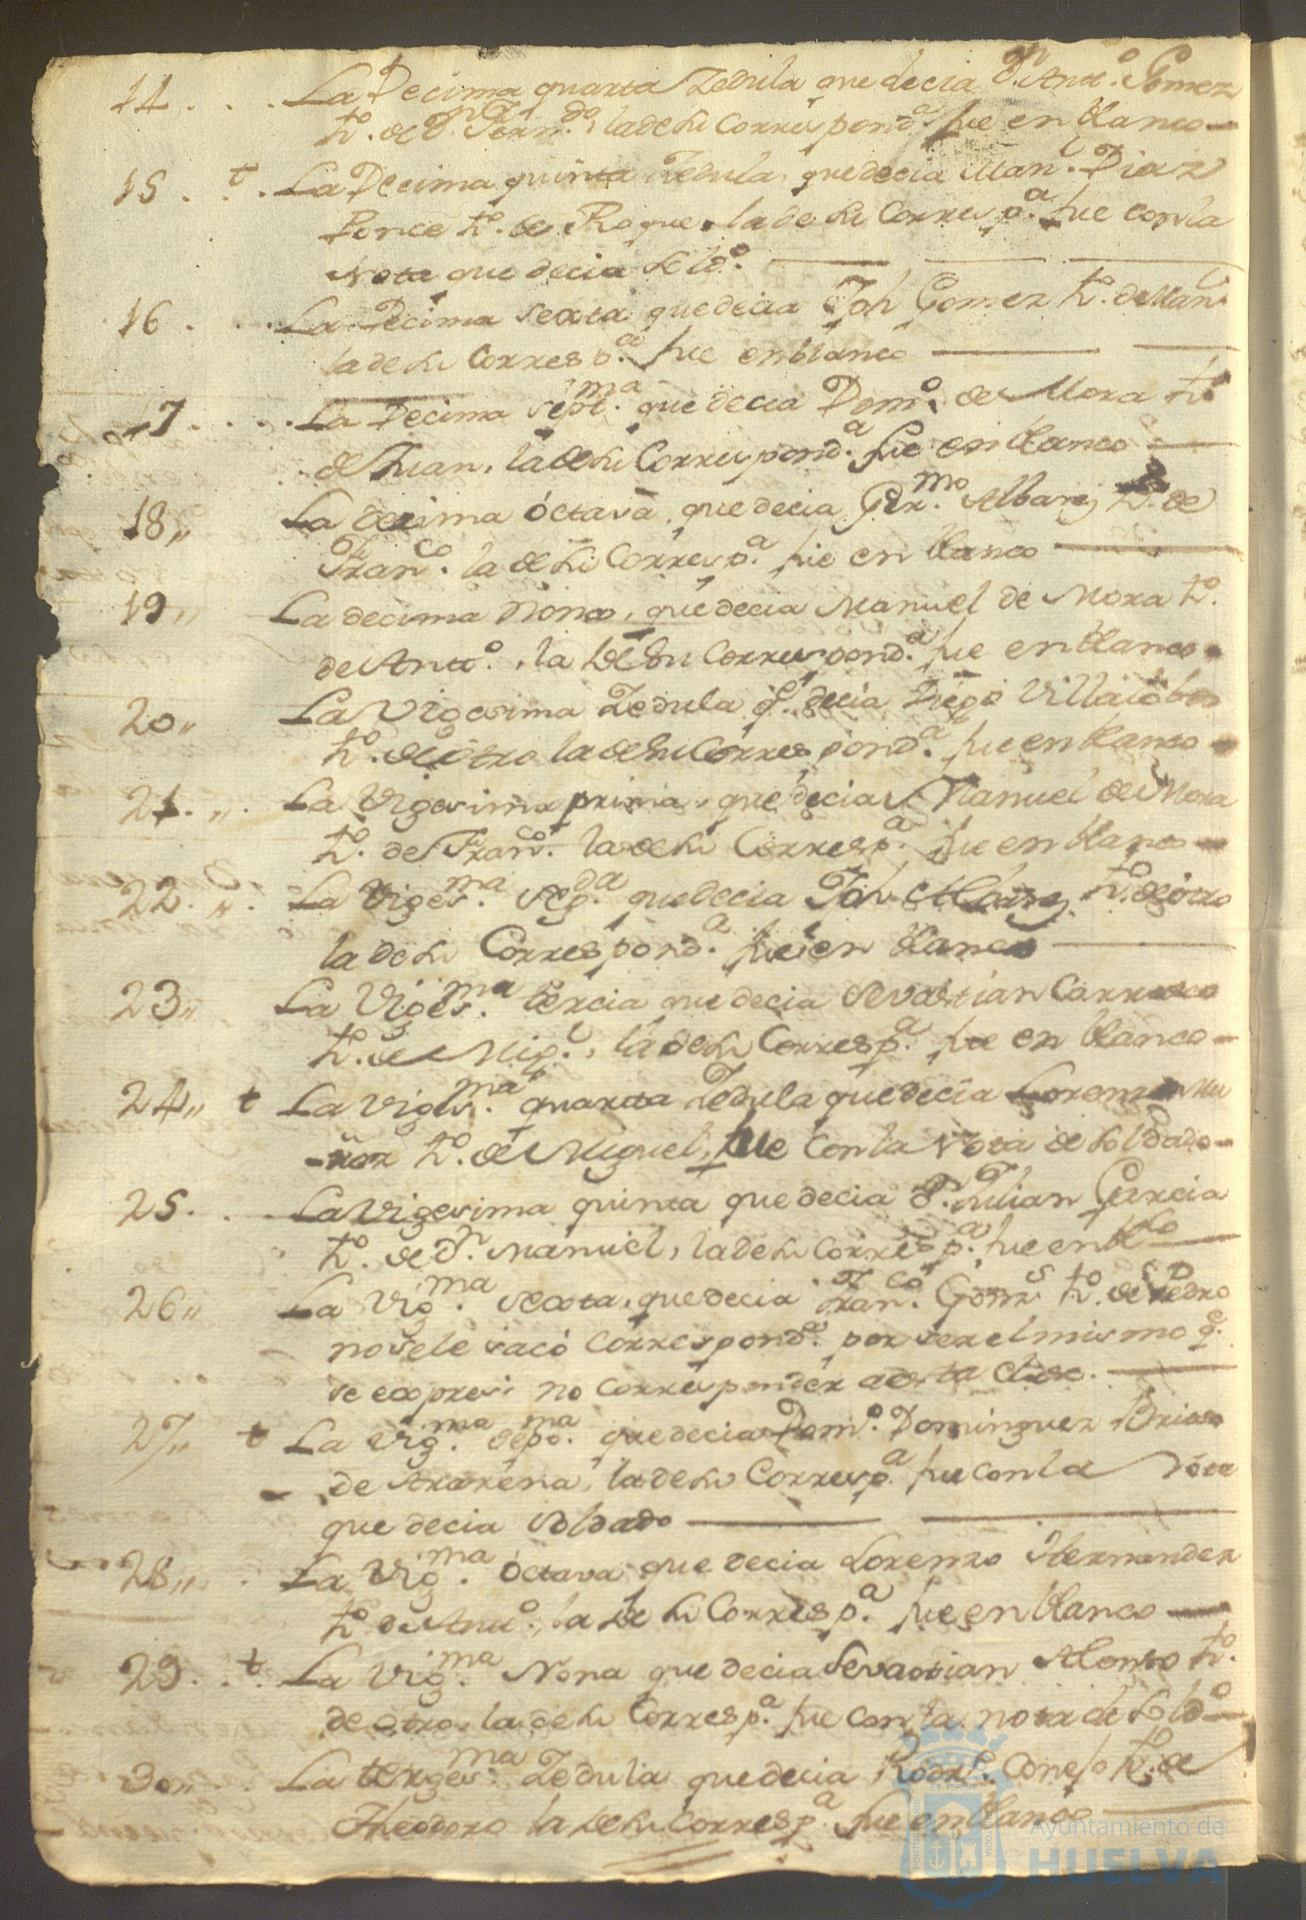 14 . . . La Decima quarta Zedula que decia Dn. Anto. Gomez
ho. de Dn. Ferndo. la de su Correspondª. fue en blanco
15 . t . La Decima quinta Zedula que decia Manl. Diaz
Ponce ho. de Roque, la de su Corresp.ª fue con la
Nota que decia Soldo.
16 . . . La Decima sexta que decia Jph Gomez ho. de Manl.
la de su Corresp.ª fue en blanco
17 . . . La Decima septma. que decia Domo. de Mora ho.
de Juan, la de su Correspondª. fue en blanco
18 „ La decima óctava, que decia Germo. Albarez ho. de
Franco. la de su Corresp.ª fue en blanco
19 „ La decima Nona, que decia Manuel de Mora ho.
de Anto., la de su Correspondª. fue en blanco
20 „ La Vigesima Zedula q. decia Diego Villalobos
ho. de otro la de su Correspondª. fue en blanco
21 . „ . La Vigesima prima, que decia Manuel de Mora
ho. de Franco. la de su Corresp.ª fue en blanco
22 . „ . La Vigesma. segda. que decia Jph Albarez ho. de otro
la de su Correspondª. fue en blanco
23 „ La Vigesma. tercia que decia Sevastian Carrasco
ho. de Migl., la de su Corresp.ª fue en blanco
24 „ t La Vigesma. quarta Zedula que decia Lorenzo Mu
ñoz ho. de Miguel, fue con la Nota de Soldado
25 . . . La Vigesima quinta que decia Dn. Julian Garcia
ho. de Dn. Manuel, la de su Corresp.ª fue en blco
26 „ La Vigma. sexta, que decia Franco. Gomz ho. de Pedro
no se le sacó Correspondª. por ser el mismo q.
se expresó no corresponder a esta clase.
27 „ t La Vigma. sepma. que decia Domo. Dominguez Brioso
de Aracena, la de su Corresp.ª fue con la Nota
que decia Soldado
28 „ . La Vigma. óctava que decia Lorenzo Hernandez
ho. de Anto., la de su Corresp.ª fue en blanco
29 . . t . La Vigma. Nona que decia Sevastian Alonso ho.
de otro, la de su Corresp.ª fue con la nota de Soldo
30 „ . La trigesma. Zedula que decia Rodro. Conejo ho. de
Theodoro la de su Corresp.ª fue en blanco
Ayuntamiento de
HUELVA